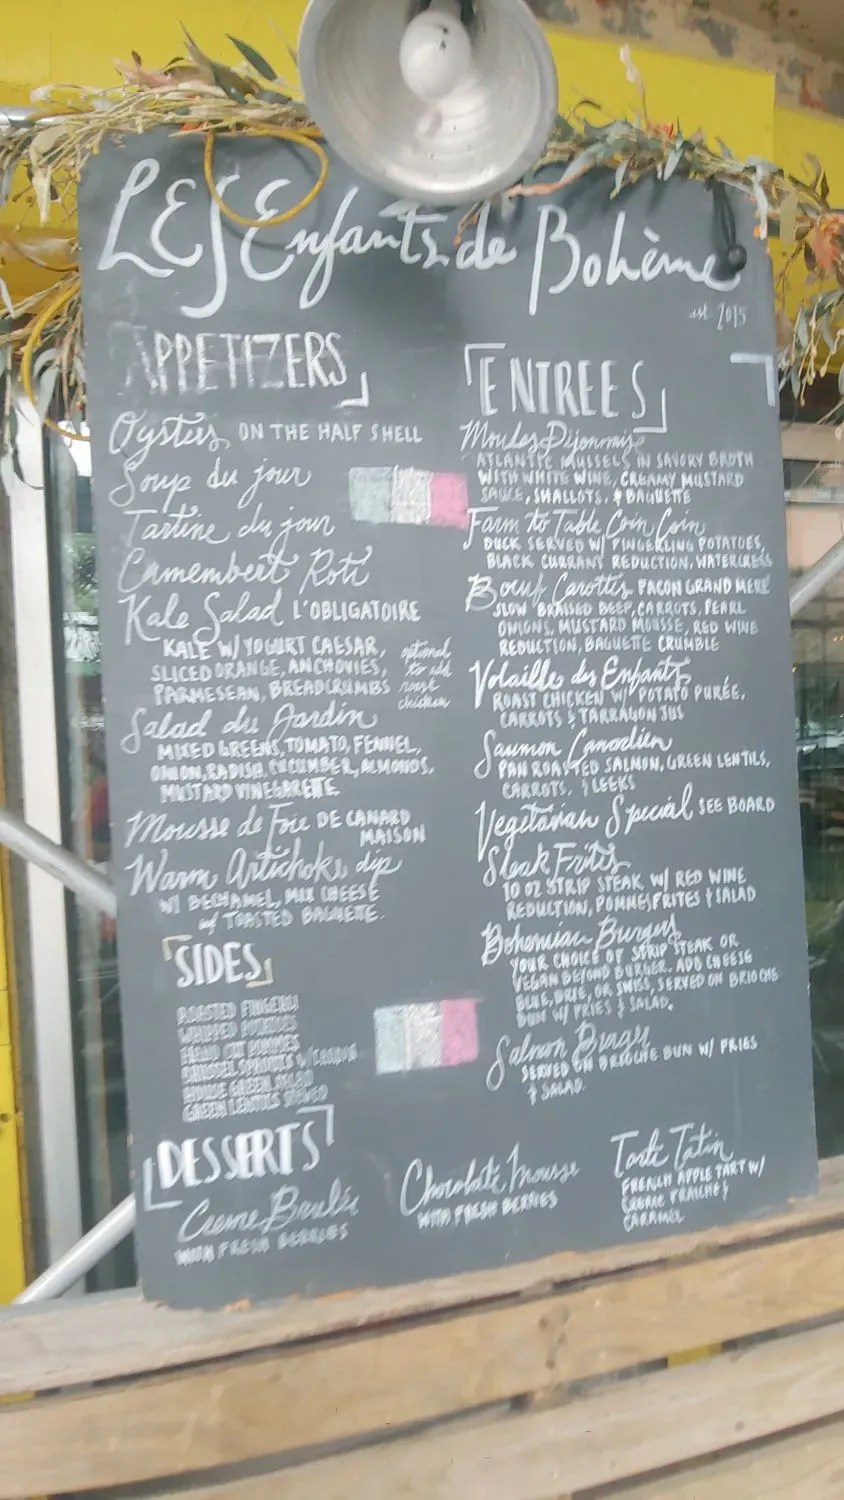 LES Enfants de Bohème
est. 2015
APPETIZERS
Oysters ON THE HALF SHELL
Soup du jour
Tartine du jour
Camembert Roti
Kale Salad L'OBLIGATOIRE
KALE W/ YOGURT CAESAR,
SLICED ORANGE, ANCHOVIES,
PARMESEAN, BREADCRUMBS
optional
to add
roast
chicken
Salad du Jardin
MIXED GREENS, TOMATO, FENNEL,
ONION, RADISH, CUCUMBER, ALMONDS,
MUSTARD VINEGARETTE
Mousse de Foie DE CANARD
MAISON
Warm Artichoke dip
W/ BECHAMEL, MIX CHEESE
w/ TOASTED BAGUETTE.
SIDES
ROASTED FINGERLI
WHIPPED POTATOES
HAND CUT POMMES
BRUSSEL SPROUTS W/
HOUSE GREEN SALAD
GREEN LENTILS STEWED
ENTREES
Moules Dijonnaise
ATLANTIC MUSSELS IN SAVORY BROTH
WITH WHITE WINE, CREAMY MUSTARD
SAUCE, SHALLOTS, & BAGUETTE
Farm to Table Coin Coin
DUCK SERVED W/ FINGERLING POTATOES,
BLACK CURRANT REDUCTION, WATERCRESS
Boeuf Carottes FACON GRAND MERE
SLOW BRAISED BEEF, CARROTS, PEARL
ONIONS, MUSTARD MOUSSE, RED WINE
REDUCTION, BAGUETTE CRUMBLE
Volaille des Enfants
ROAST CHICKEN W/ POTATO PURÉE,
CARROTS & TARRAGON JUS
Saumon Canadien
PAN ROASTED SALMON, GREEN LENTILS,
CARROTS, & LEEKS
Vegetarian Special SEE BOARD
Steak Frites
10 OZ STRIP STEAK W/ RED WINE
REDUCTION, POMMES FRITES & SALAD
Bohemian Burger
YOUR CHOICE OF STRIP STEAK OR
VEGAN BEYOND BURGER. ADD CHEESE
BLUE, BRIE, OR SWISS, SERVED ON BRIOCHE
BUN W/ FRIES & SALAD.
Salmon Burger
SERVED ON BRIOCHE BUN W/ FRIES
& SALAD.
DESSERTS
Creme Brulée
WITH FRESH BERRIES
Chocolate Mousse
WITH FRESH BERRIES
Tarte Tatin
FRENCH APPLE TART W/
CREME FRAICHE &
CARAMEL